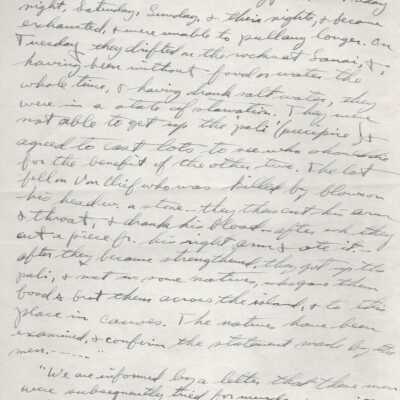 night, Saturday, Sunday, & their nights, & became
exhausted, & were unable to pull any longer. On
Tuesday they drifted on the rocks at Lanai, &,
having been without food or water the
whole time, & having drank salt water, they
were in a state of starvation. They were
not able to get up the pali (precipice) &
agreed to cast lots to see who should die
for the benefit of the other two. The lot
fell on who was killed by blows on
his head w. a stone – they then cut his arm
& throat, & drank his blood – after wh. they
cut a piece fr. his right arm & ate it. –
after they became strengthened, they got up the
pali, & met w. some natives, who gave them
food & brot them across the island, & to this
place in canoes. The natives have been
examined, & confirm the statement made by the
men. – – – – "
"We are informed by a letter that these men
were subsequently tried for murder